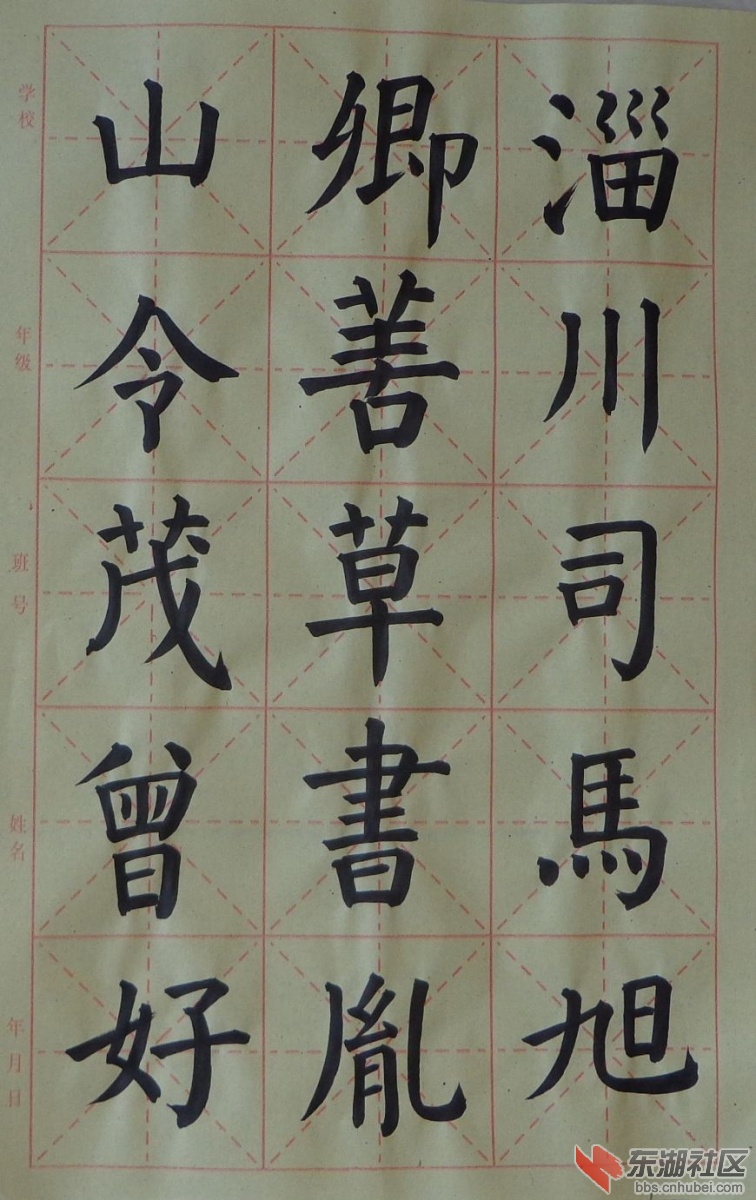 淄川司馬旭
卿善草書胤
山令茂曾好
学校
年级
班号
姓名
年月日
东湖社区
bbs.cnhubei.com